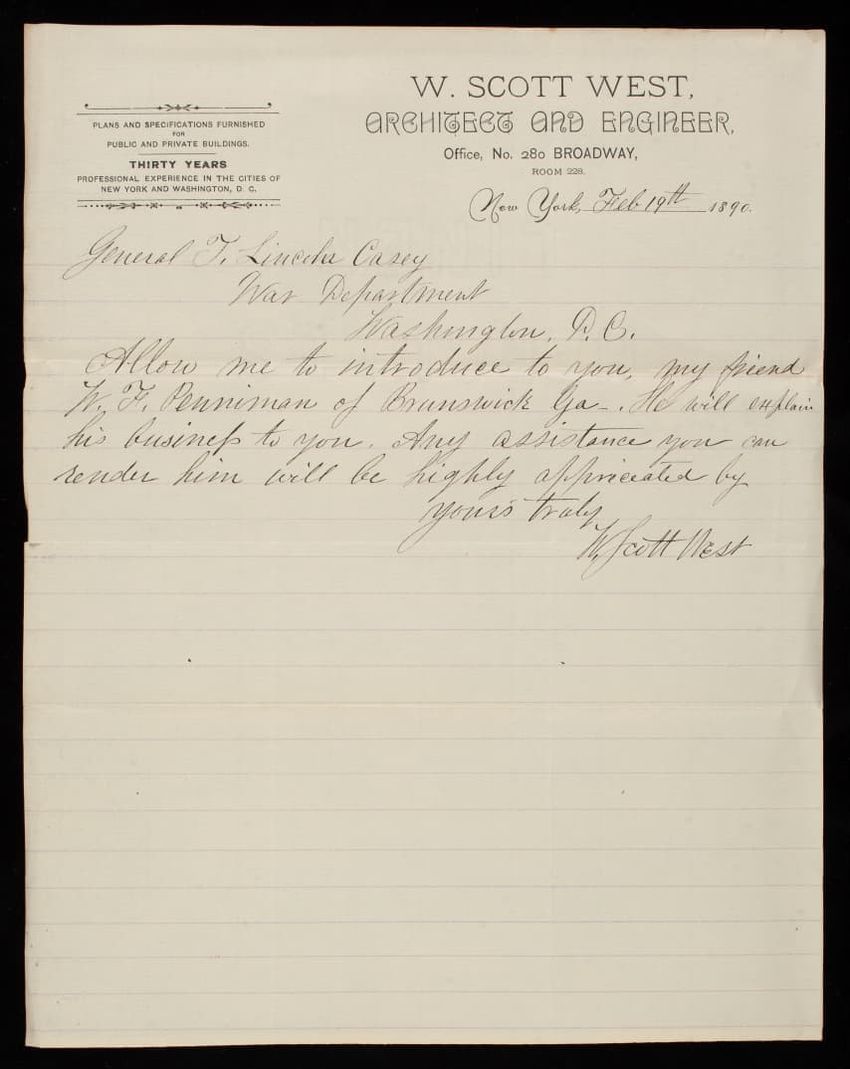 PLANS AND SPECIFICATIONS FURNISHED
FOR
PUBLIC AND PRIVATE BUILDINGS.
THIRTY YEARS
PROFESSIONAL EXPERIENCE IN THE CITIES OF
NEW YORK AND WASHINGTON, D. C.
W. SCOTT WEST,
ARCHITECT AND ENGINEER,
Office, No. 280 BROADWAY,
ROOM 228.
New York, Feb 19th 1890.
General T. Lincoln Casey
War Department
Washington, D. C.
Allow me to introduce to you, my friend
W. F. Penniman of Brunswick Ga. He will explain
his business to you. Any assistance you can
render him will be highly appriceated by
yours truly
W. Scott West